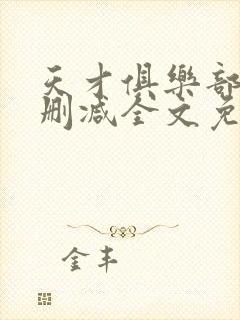 天才俱樂部
刪減全文免
金丰